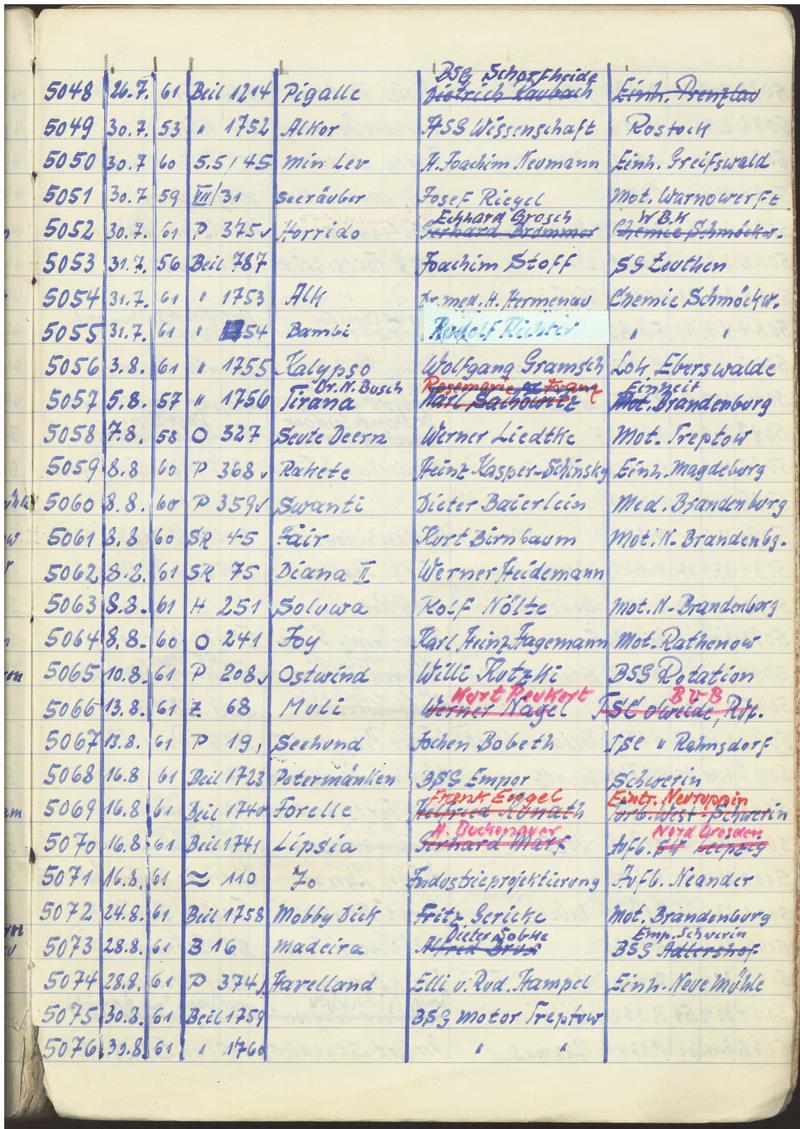 BSG Schorfheide
5048 26.7. 61 Beil 1214 Pigalle Dietrich Kaubach Einh. Prenzlau
5049 30.7. 53 " 1752 Alkor HSG Wissenschaft Rostock
5050 30.7 60 5.5/45 Min Lev H. Joachim Neumann Einh. Greifswald
5051 30.7 59 VII/31 Seeräuber Josef Riegel Mot. Warnowerft
Eckhard Grosch WBK
5052 30.7. 61 P 375 Horrido Gerhard Brommer Chemie Schmöckw.
5053 31.7. 56 Beil 787 Joachim Stoff SG Zeuthen
5054 31.7. 61 " 1753 Alk Dr. med. H. Hermenau Chemie Schmöckw.
5055 31.7. 61 " 1754 Bambi Rudolf Richter " "
5056 3.8. 61 " 1755 Kalypso Wolfgang Gramsch Lok. Eberswalde
Dr. N. Busch Rosemarie Franz Einheit
5057 5.8. 57 " 1756 Tirana Karl Sachowitz Mot. Brandenburg
5058 7.8. 58 O 327 Seute Deern Werner Liedtke Mot. Treptow
5059 8.8. 60 P 368 Rakete Heinz Kasper-Schinsky Einh. Magdeburg
5060 8.8. 60 P 359 Swanti Dieter Baierlein Med. Brandenburg
5061 8.8. 60 SR 45 Fair Kurt Birnbaum Mot. N. Brandenbg.
5062 8.8. 61 SR 75 Diana II Werner Heidemann
5063 8.8. 61 H 251 Soluwa Rolf Nölte Mot. N-Brandenburg
5064 8.8. 60 O 241 Joy Karl Heinz Hagemann Mot. Rathenow
5065 10.8. 61 P 208 Ostwind Willi Kutzki BSG Rotation
Kurt Peukert BVB
5066 13.8. 61 Z 68 Muli Werner Nagel TSC Oberspree, Rdf.
5067 13.8. 61 P 19 Seehund Jochen Bobeth TSC " Rahnsdorf
5068 16.8 61 Beil 1723 Petermänken BSG Empor Schwerin
Frank Engel Eintr. Neuruppin
5069 16.8 61 Beil 1740 Forelle Helfried Kunath Aufb. West-Schwerin
H. Buchenauer Nord Dresden
5070 16.8. 61 Beil 1741 Lipsia Gerhard Marf Aufb. Leipzig
5071 16.8. 61 ≈ 110 Jo Industrieprojektierung Aufb. Neander
5072 24.8. 61 Beil 1758 Mobby Dick Fritz Gericke Mot. Brandenburg
Dieter Bobtke Emp. Schwerin
5073 28.8. 61 B 16 Madeira Alfred BSG Adlershof
5074 28.8. 61 P 374 Havelland Elli u. Rud. Hampel Einh. Neue Mühle
5075 30.8. 61 Beil 1759 BSG Motor Treptow
5076 30.8. 61 " 1760 " "